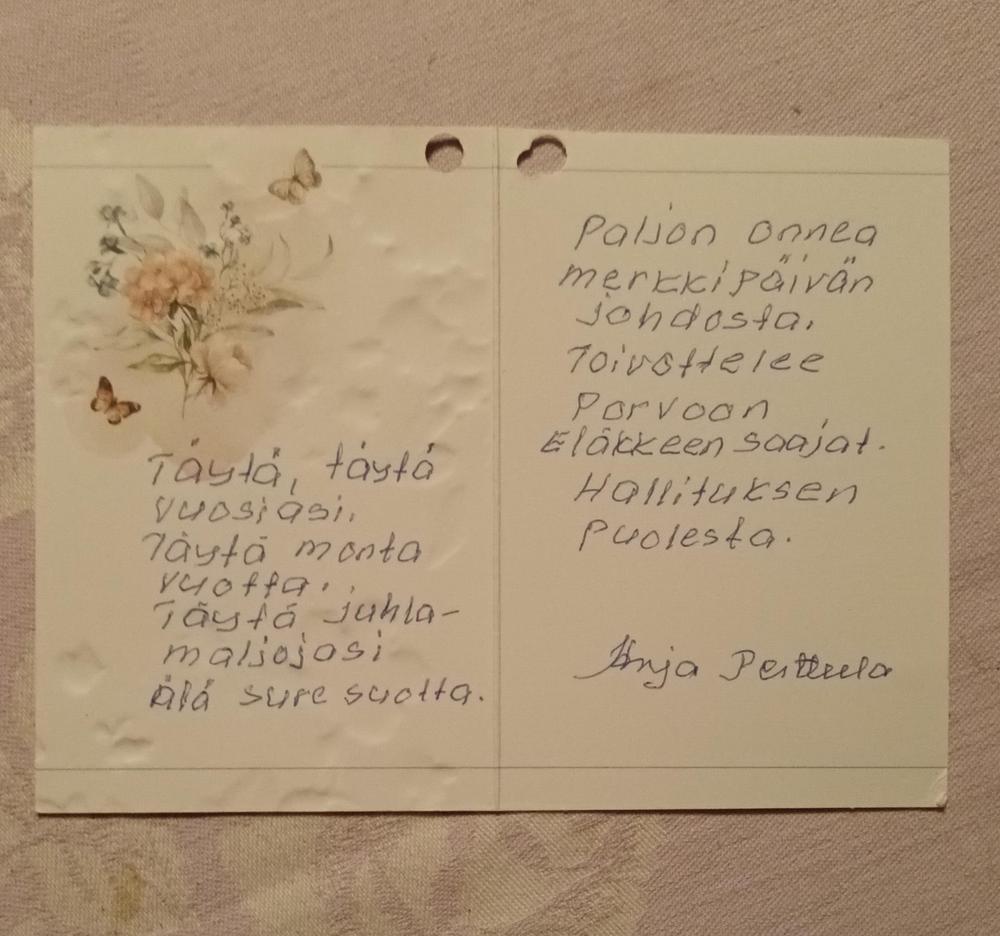 Täytä, täytä
vuosiasi.
Täytä monta
vuotta.
Täytä juhla-
maljojasi
älä sure suotta.
Paljon onnea
merkkipäivän
johdosta.
Toivottelee
Porvoon
Eläkkeensaajat.
Hallituksen
Puolesta.
Anja